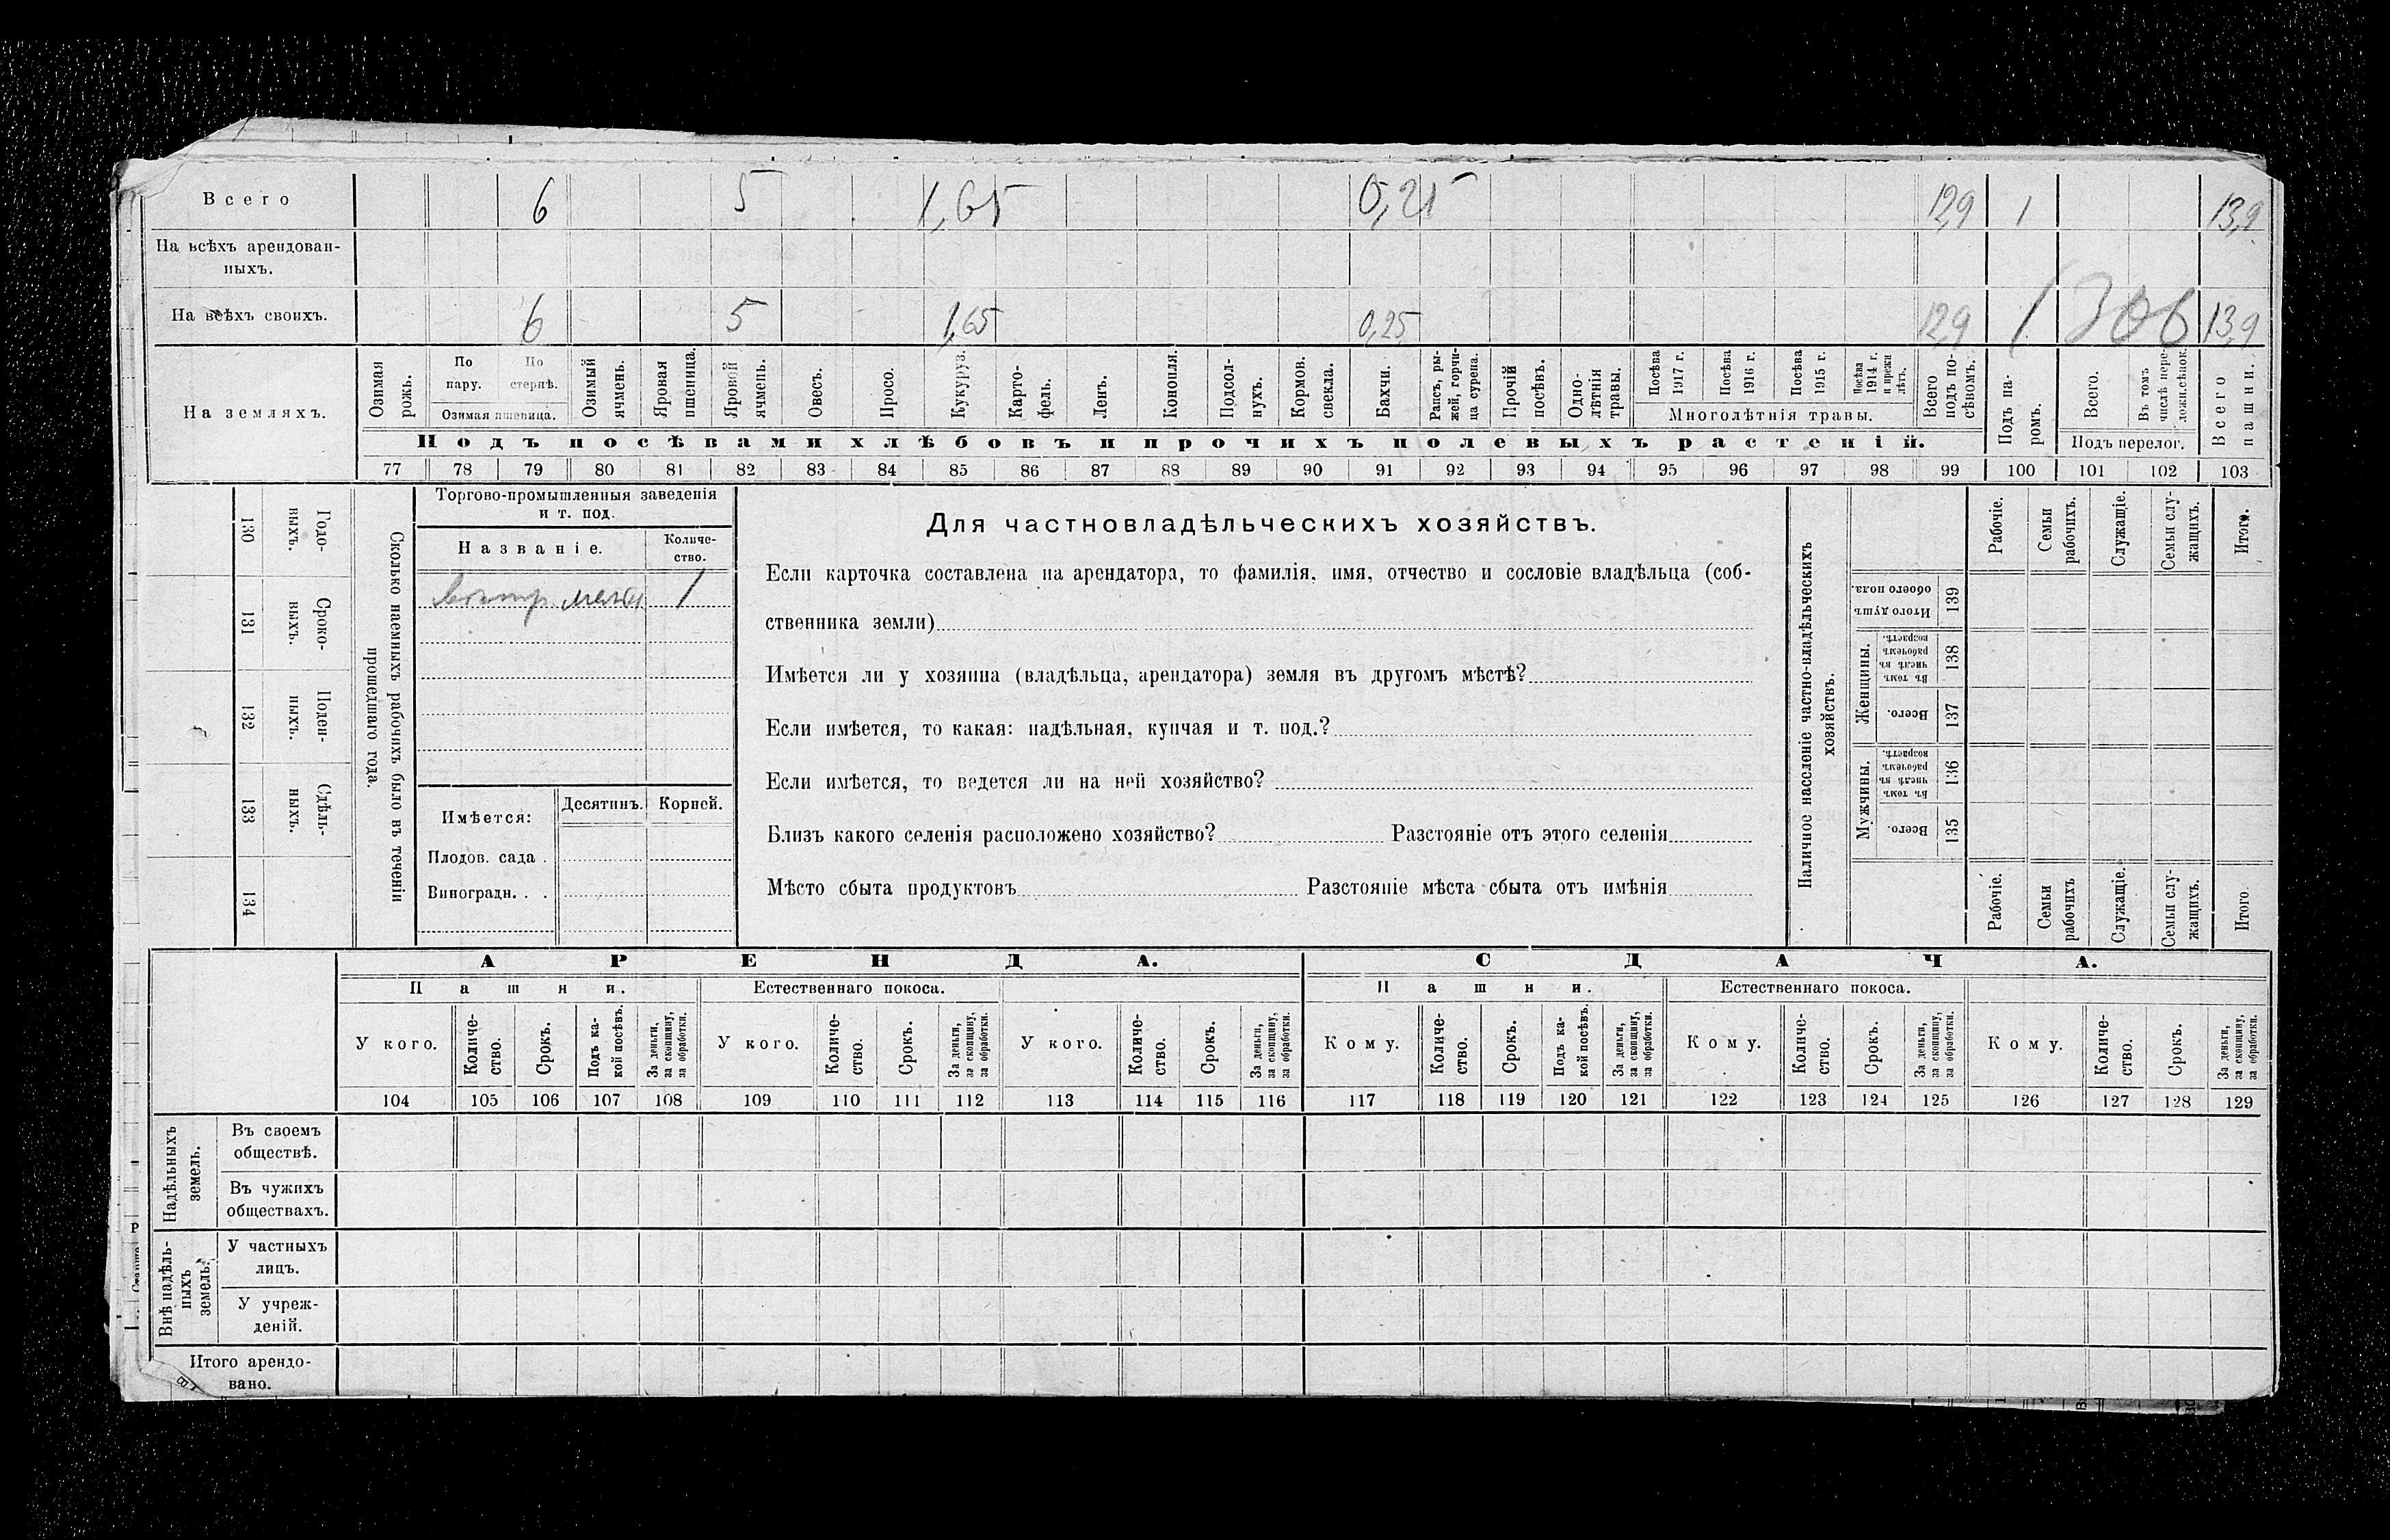 Всего 6 5 1,65 0,25 12,9 1 13,9
На всѣхъ арендован-
ныхъ.
На всѣхъ своихъ. 6 5 1,65 0,25 12,9 1 306 13,9
На земляхъ.
Озимая рожь.
По пару.
По стернѣ.
Озимая пшеница.
Озимый ячмень.
Яровая пшеница.
Яровой ячмень.
Овесъ.
Просо.
Кукуруз.
Карто-
фель.
Ленъ.
Конопля.
Подсол-
нухъ.
Кормов.
свекла.
Бахчи.
Рапсъ, ры-
жей, горчи-
ца сурепа.
Прочій
посѣвъ.
Одно-
лѣтнія
травы.
Посѣва
1917 г.
Посѣва
1916 г.
Посѣва
1915 г.
Посѣва
1914 г.
и прежн
лѣтъ.
Многолѣтнія травы.
Всего
подъ по-
сѣвомъ.
Подъ па-
ромъ.
Всего.
Въ томъ
числѣ пере-
ложн.сѣнок.
Подъ перелог.
Всего
пашни.
Подъ посѣвами хлѣбовъ и прочихъ полевыхъ растеній.
77 78 79 80 81 82 83 84 85 86 87 88 89 90 91 92 93 94 95 96 97 98 99 100 101 102 103
Сколько наемныхъ рабочихъ было въ теченіи
прошедшаго года.
Годо-
выхъ.
130
Сроко-
выхъ.
131
Поден-
ныхъ.
132
Сдѣль-
ныхъ.
133
134
Торгово-промышленныя заведенія
и т. под.
Названіе.
Количе-
ство.
1
Имѣется:
Десятинъ. Корней.
Плодов. сада .
Виноградн. . .
Для частновладѣльческихъ хозяйствъ.
Если карточка составлена на арендатора, то фамилія, имя, отчество и сословіе владѣльца (соб-
ственника земли)
Имѣется ли у хозяина (владѣльца, арендатора) земля въ другомъ мѣстѣ?
Если имѣется, то какая: надѣльная, купчая и т. под.?
Если имѣется, то ведется ли на ней хозяйство?
Близъ какого селенія расположено хозяйство? Разстояніе отъ этого селенія
Мѣсто сбыта продуктовъ Разстояніе мѣста сбыта отъ имѣнія
Наличное населеніе частно-владѣльческихъ
хозяйствъ.
Рабочіе.
Семьи
рабочихъ.
Служащіе.
Семьи слу-
жащихъ.
Итого.
Итого душъ
обоего пола.
139
Женщины.
Въ томъ
числѣ въ
рабочемъ
возрастѣ.
138
Всего.
137
Мужчины.
Въ томъ
числѣ въ
рабочемъ
возрастѣ.
136
Всего.
135
Рабочіе.
Семьи
рабочихъ
Служащіе.
Семьи слу-
жащихъ.
Итого.
АРЕНДА. СДАЧА.
Пашни. Естественнаго покоса. Пашни. Естественнаго покоса.
У кого.
Количе-
ство.
Срокъ.
Подъ ка-
кой посѣвъ.
За деньги,
за скопщину,
за обработки.
У кого.
Количе-
ство.
Срокъ.
За деньги,
за скопщину,
за обработки.
У кого.
Количе-
ство.
Срокъ.
За деньги,
за скопщину,
за обработки.
Кому.
Количе-
ство.
Срокъ.
Подъ ка-
кой посѣвъ.
За деньги,
за скопщину,
за обработки.
Кому.
Количе-
ство.
Срокъ.
За деньги,
за скопщину,
за обработки.
Кому.
Количе-
ство.
Срокъ.
За деньги,
за скопщину,
за обработки.
104 105 106 107 108 109 110 111 112 113 114 115 116 117 118 119 120 121 122 123 124 125 126 127 128 129
Надѣльныхъ
земель.
Въ своемъ
обществѣ.
Въ чужихъ
обществахъ.
Внѣ надѣль-
ныхъ
земель.
У частныхъ
лицъ.
У учреж-
деній.
Итого арендо-
вано.